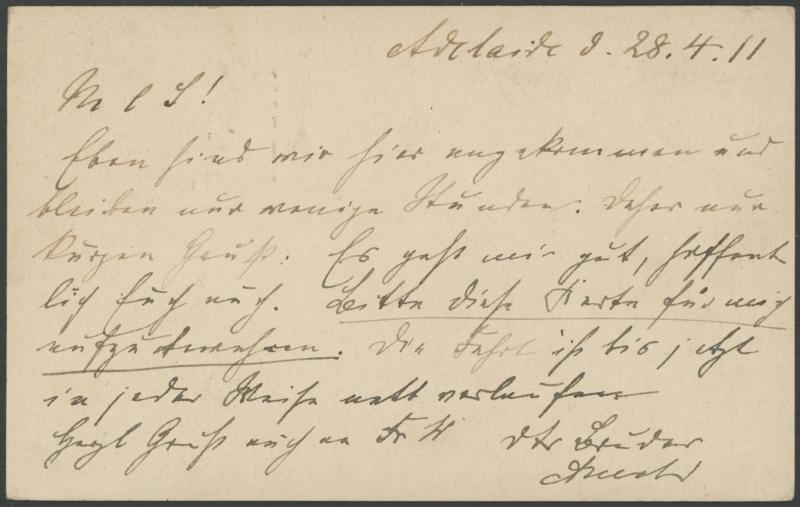 Adelaide d. 28.4.11
M l S!
Eben sind wir hier angekommen und
bleiben nur wenige Stunden. Daher nur
kurzen Gruß. Es geht mir gut, hoffent
lich Euch auch. Bitte diese Karte für mich
aufzubewahren. Die Fahrt ist bis jetzt
in jeder Weise nett verlaufen
Herzl Gruß auch an Fr H
Dtr Bruder